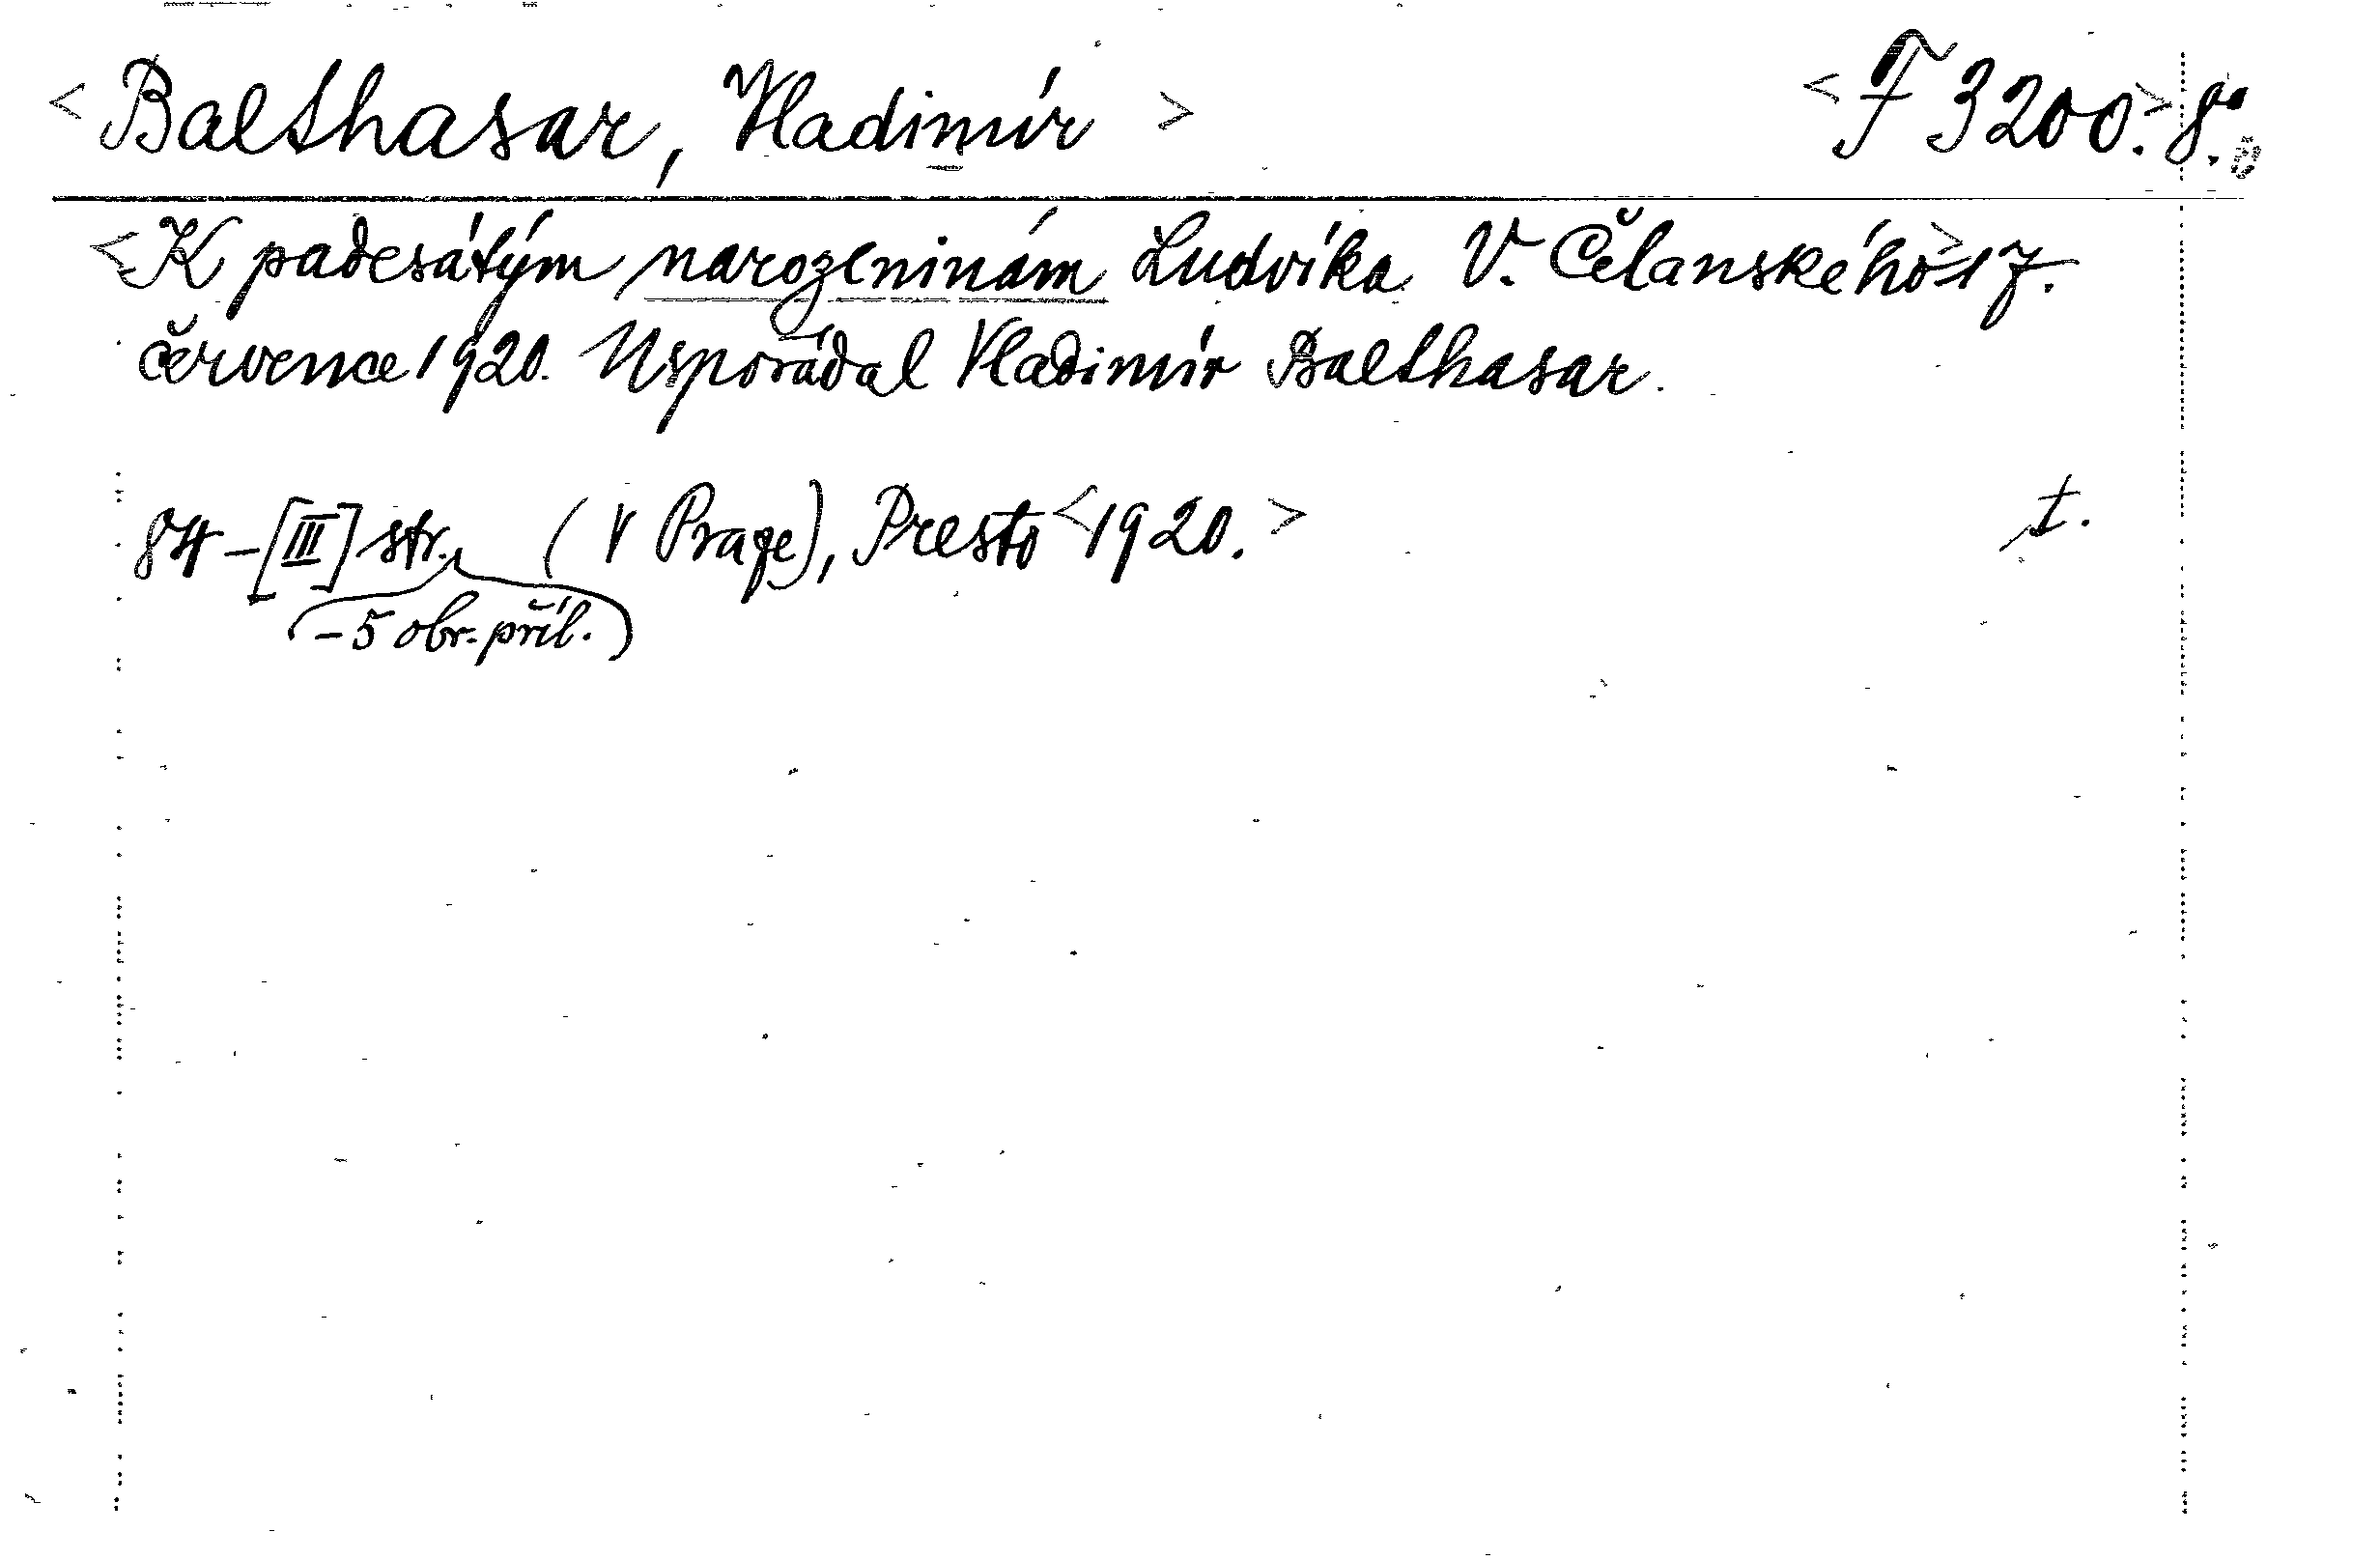 <Balthasar, Vladimír> <F 3200.> 8°.
<K padesátým narozeninám Ludvíka V. Čelanského> 17.
července 1920. Uspořádal Vladimír Balthasar.
84-[III] str. (V Praze), Presto <1920.> t.
-5 obr. příl.